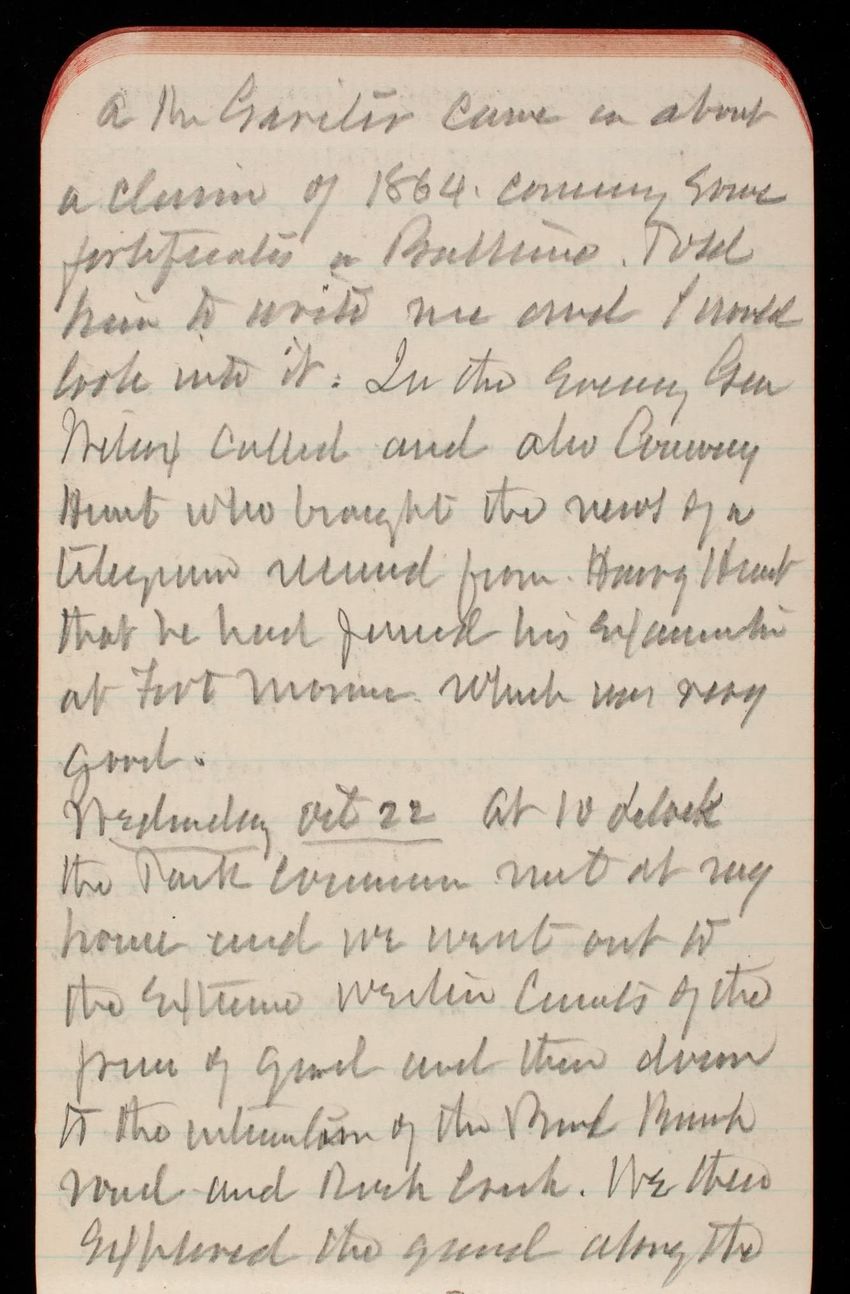 a Mr came in about
a claim of 1864. coming some
fortificatis in Baltimo. Told
him to write me and I would
look into it. In the Evening Gen
Wilcox called and also Conway
Hunt who brought the news of a
telegram received from Harry Hunt
that he had passed his Examinatin
at Fort Monroe which was very
good.
Wednesday Oct 22 At 10 oclock
the Park Commn met at my
house and we went out to
the Extreme Western limits of the
of ground and then down
to the intersection of the Broad Branch
road and Rock Creek. We then
Explored the ground along the